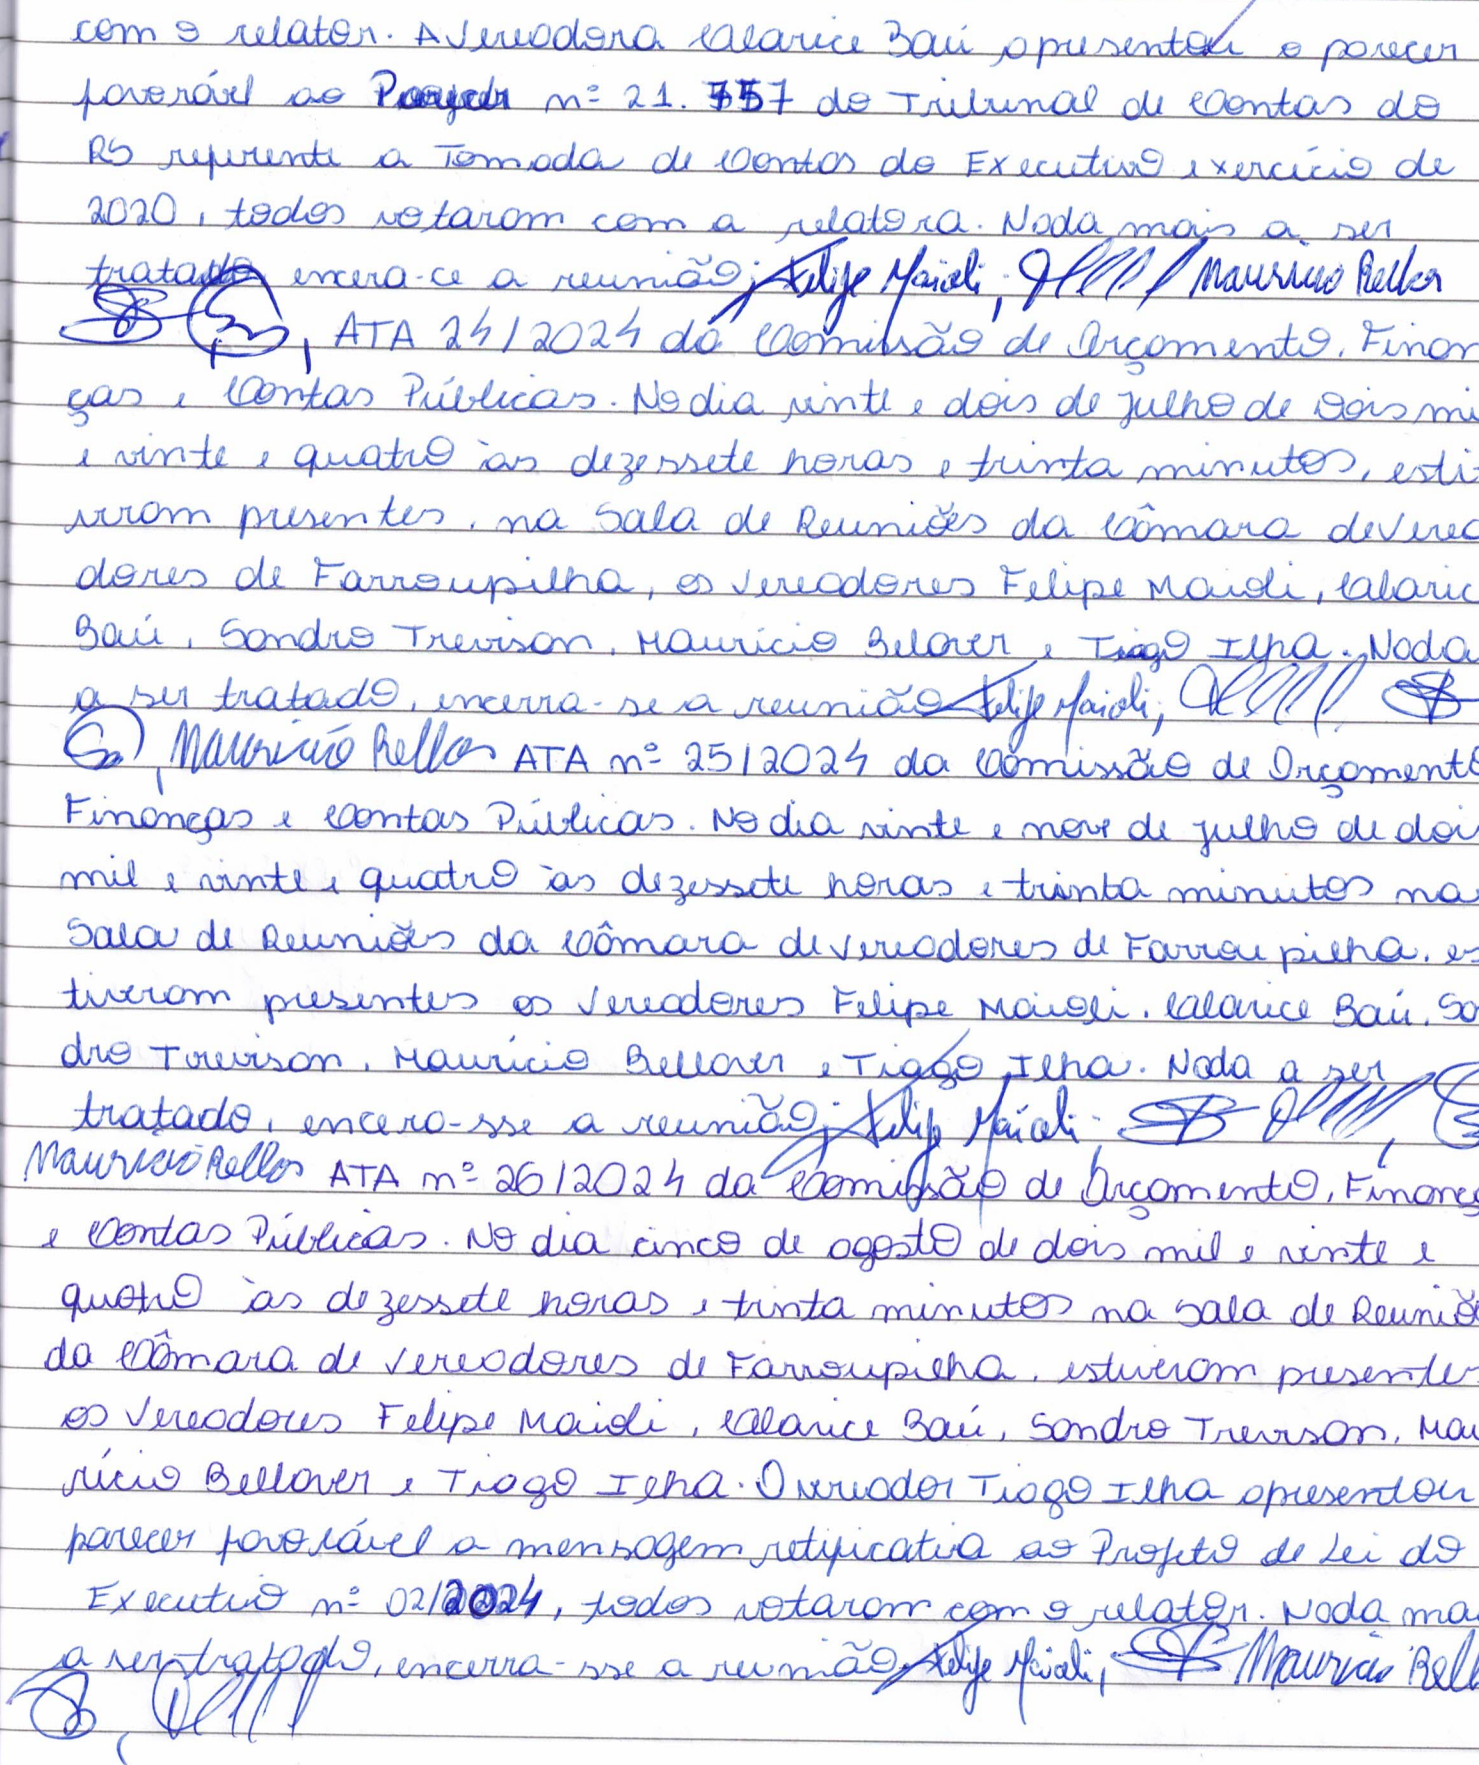 com o relator. A Vereadora Clarice Baú apresentou o parecer
favorável ao Parecer nº 21.757 do Tribunal de Contas do
RS referente a Tomada de Contas do Executivo exercício de
2020, todos votaram com a relatora. Nada mais a ser
tratado encera-ce a reunião; Felipe Maioli, Maurício Bellover
ATA 24/2024 da Comissão de Orçamento, Finan
ças e Contas Públicas. No dia vinte e dois de julho de dois mi
e vinte e quatro às dezessete horas e trinta minutos, esti
veram presentes, na Sala de Reuniões da Câmara de Verea
dores de Farroupilha, os Vereadores Felipe Maioli, Claric
Baú, Sandro Trevisan, Maurício Belover e Tiago Ilha. Nada
a ser tratado, encerra-se a reunião Felipe Maioli,
Maurício Bellover ATA nº 25/2024 da Comissão de Orçamento
Finanças e Contas Públicas. No dia vinte e nove de julho de doi
mil e vinte e quatro às dezessete horas e trinta minutos na
Sala de Reuniões da Câmara de Vereadores de Farroupilha, es
tiveram presentes os Vereadores Felipe Maioli, Clarice Baú, San
dro Trevisan, Maurício Bellover e Tiago Ilha. Nada a ser
tratado, encera-sse a reunião; Felipe Maioli,
Maurício Bellover ATA nº 26/2024 da Comissão de Orçamento, Finanç
e Contas Públicas. No dia cinco de agosto de dois mil e vinte e
quatro às dezessete horas e trinta minutos na Sala de Reuniõ
da Câmara de Vereadores de Farroupilha, estiveram presentes
os Vereadores Felipe Maioli, Clarice Baú, Sandro Trevisan, Mau
rício Bellover e Tiago Ilha. O vereador Tiago Ilha apresentou
parecer favorável a mensagem retificativa ao Projeto de Lei do
Executivo nº 02/2024, todos votaram com o relator. Nada ma
a ser tratado, encerra-sse a reunião Felipe Maioli, Maurício Bell